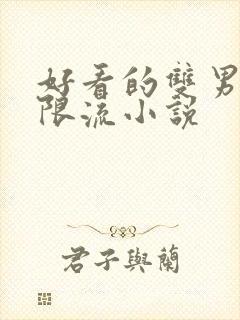 好看的雙男
限流小說
君子與蘭